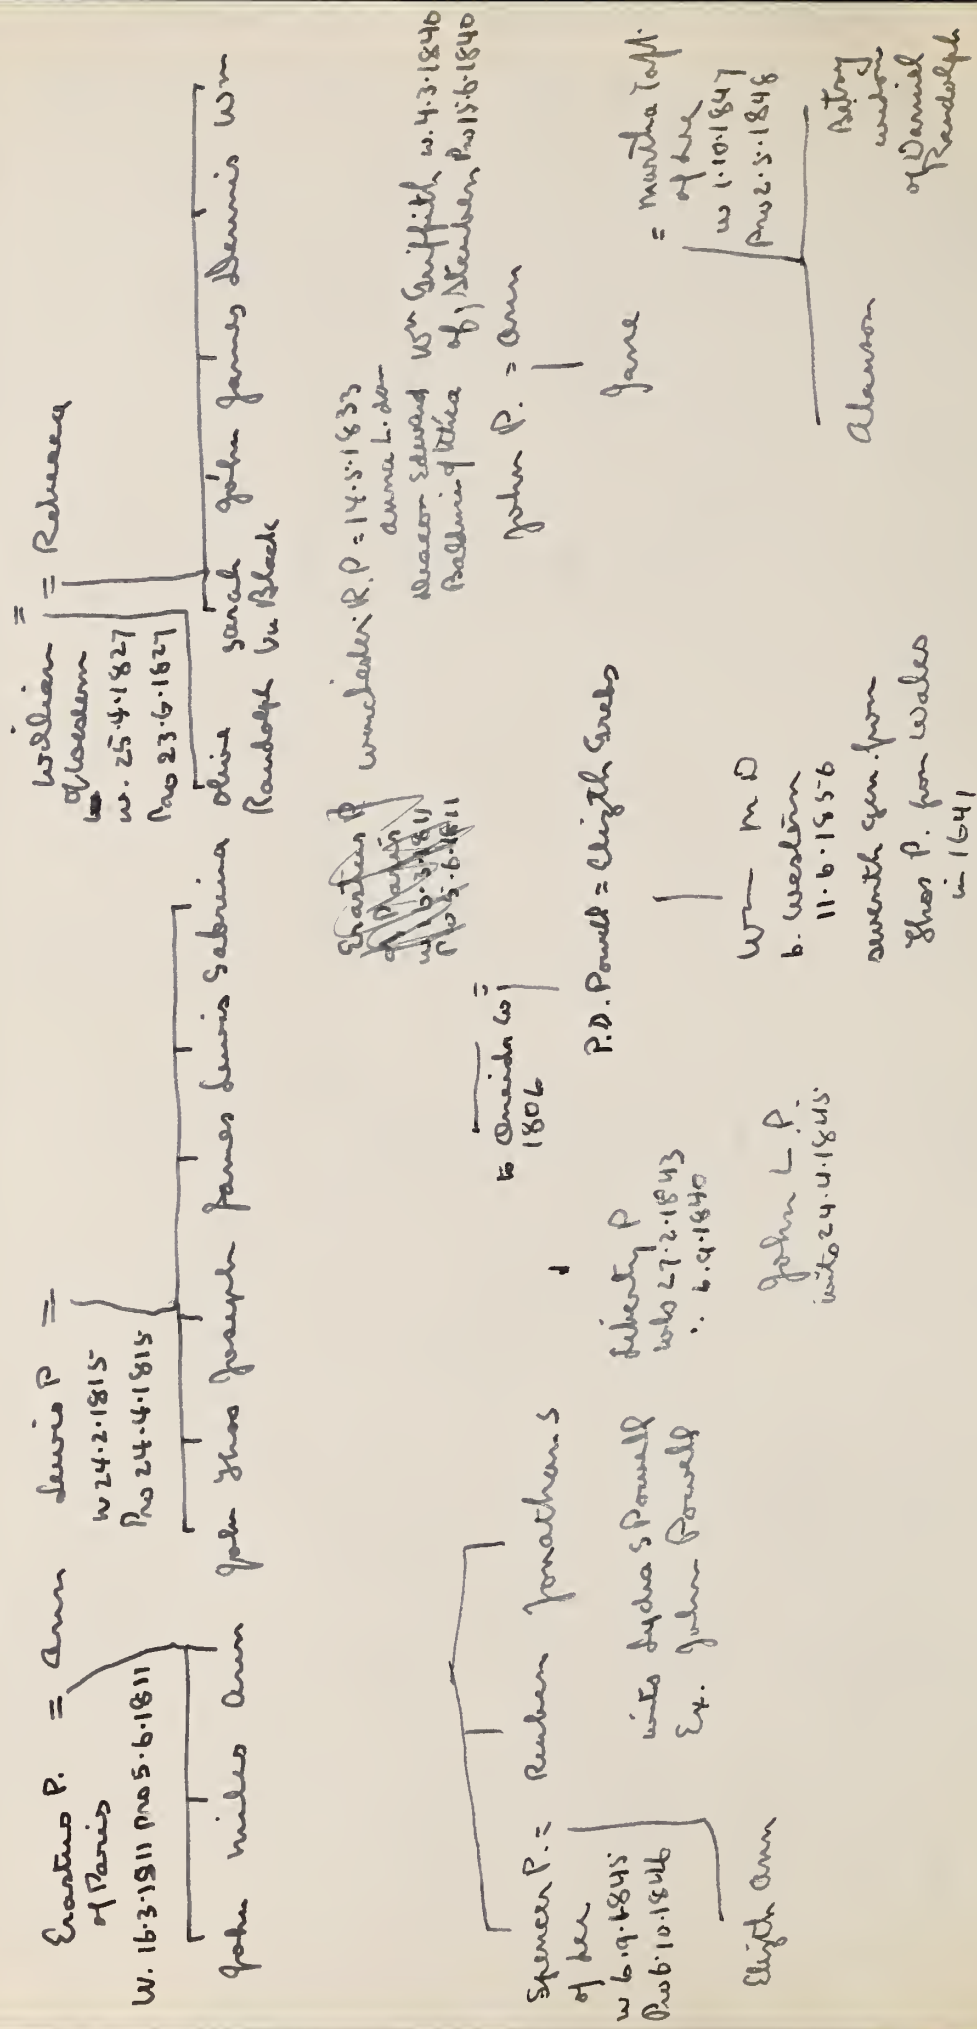 Erastus P. = Ann
of Paris
W. 16.3.1811 Pro 5.6.1811
John Miles Ann
Lewis P =
W 24.2.1815
Pro 24.4.1815
John Thos Joseph James Lewis Sabrina
William = = Rebecca
of
W. 25.4.1827
Pro 23.6.1827
Olive Sarah John James Dennis Wm
Randolph Van Black
Spencer P. = Reuben Jonathan S
of Lee
W 6.9.1845
Pro 6.10.1846
Elizth Ann
wits Lydia S Powell
Ex. John Powell
Liberty P
wits 27.2.1843
" 6.9.1840
John L P.
wits 24.4.1845
to Oneida Co =
1806
P.D. Powell = Elizth Grebs
Wm M D
b. Western
11.6.1856
seventh gen. from
Thos P. from Wales
in 1641
Erastus P
of Paris
W 16.3.1811
Pro 5.6.1811
Winchester R.P = 14.5.1833
Anne L. dau
Deacon Edward
Baldwin of Utica
Wm Griffith W. 4.3.1840
of Steuben Pro 15.6.1840
John P. = Ann
Jane
= Martha Taft
of Lee
W 1.10.1847
Pro 2.5.1848
Alanson
Betsy
widow
of Daniel
Randolph